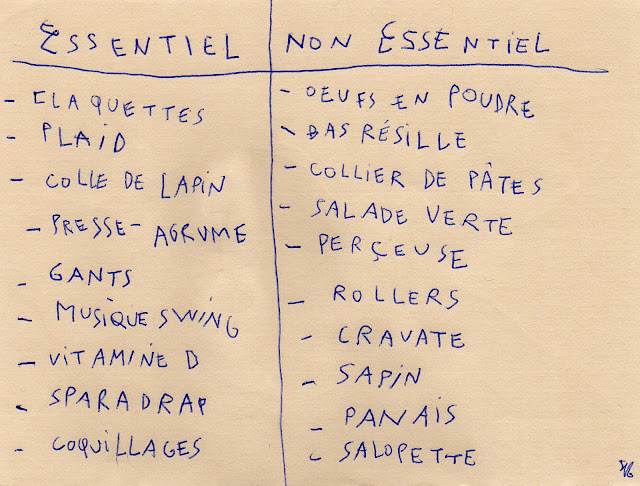 ESSENTIEL
- CLAQUETTES
- PLAID
- COLLE DE LAPIN
- PRESSE-AGRUME
- GANTS
- MUSIQUE SWING
- VITAMINE D
- SPARADRAP
- COQUILLAGES
NON ESSENTIEL
- OEUFS EN POUDRE
- BAS RÉSILLE
- COLLIER DE PÂTES
- SALADE VERTE
- PERÇEUSE
- ROLLERS
- CRAVATE
- SAPIN
- PANAIS
- SALOPETTE